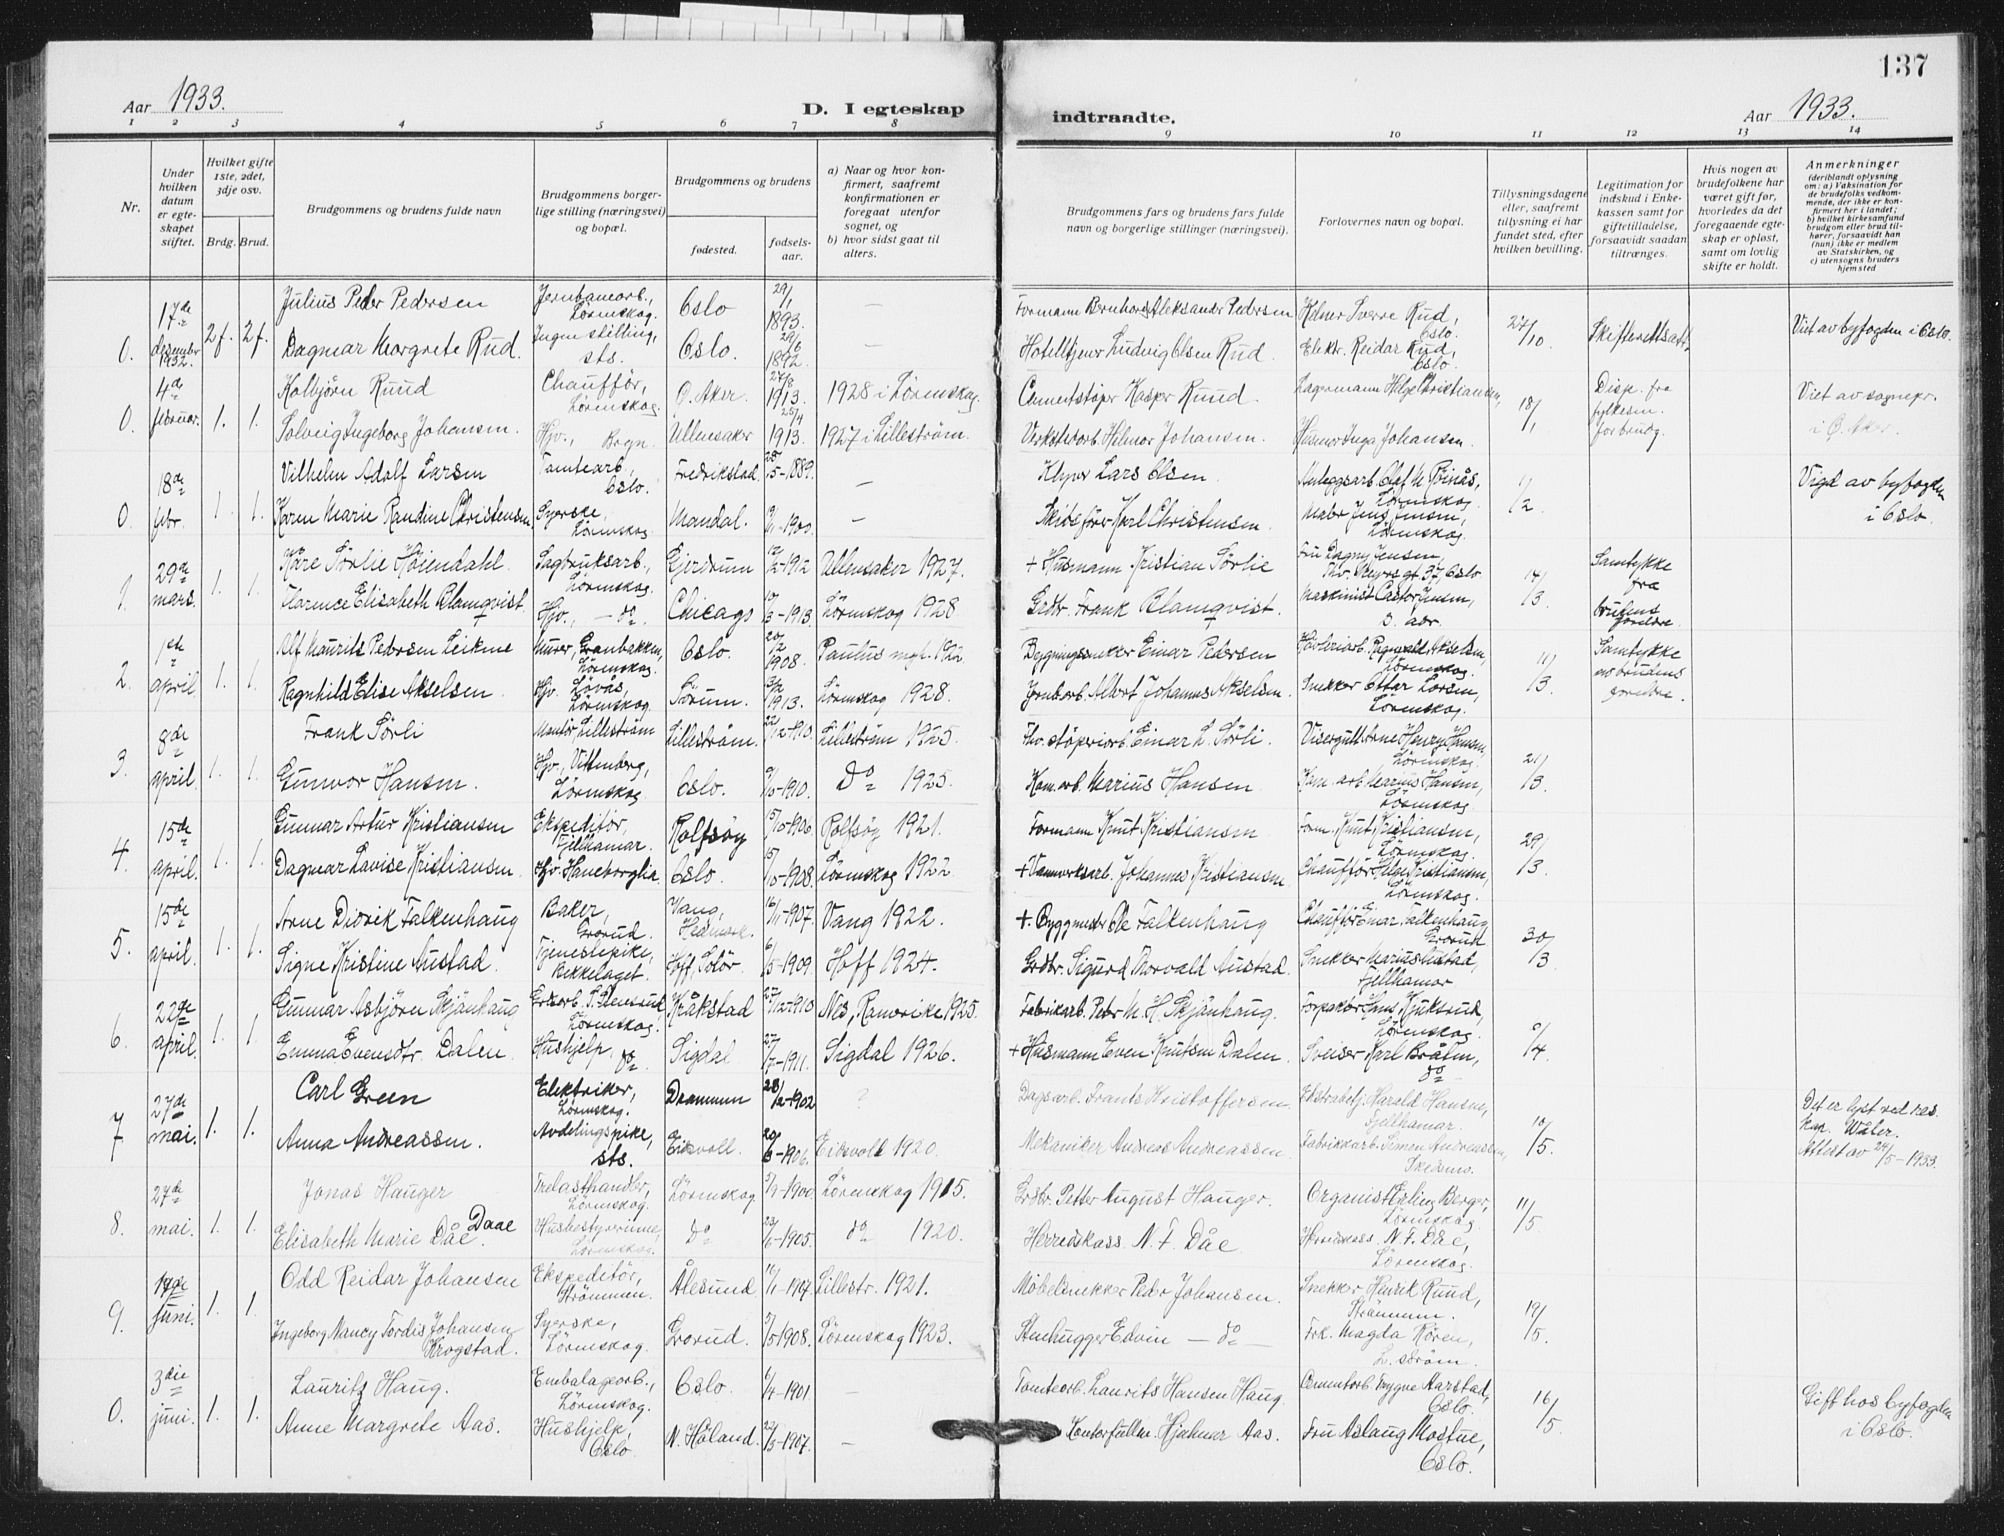 137
Aar 1933.
D. I egteskap indtraadte.
Aar 1933.
1 2 3 4 5 6 7 8 9 10 11 12 13 14
Nr.
Under hvilken datum er egteskapet stiftet.
Hvilket gifte 1ste, 2det, 3dje osv.
Brdg. Brud.
Brudgommens og brudens fulde navn
Brudgommens borgerlige stilling (næringsvei) og bopæl.
Brudgommens og brudens
fødested.
fødselsaar.
a) Naar og hvor konfirmert, saafremt konfirmationen er foregaat utenfor sognet, og
b) hvor sidst gaat til alters.
Brudgommens fars og brudens fars fulde navn og borgerlige stillinger (næringsvei).
Forlovernes navn og bopæl.
Tillysningsdagene eller, saafremt tillysning ei har fundet sted, efter hvilken bevilling.
Legitimation for indskud i Enkekassen samt for giftetilladelse, forsaavidt saadan tiltrænges.
Hvis nogen av brudefolkene har været gift før, hvorledes da det foregaaende egteskap er opløst, samt om lovlig skifte er holdt.
Anmerkninger (deriblandt oplysning om: a) Vaksination for de brudefolks vedkommende, der ikke er konfirmert her i landet; b) hvilket kirkesamfund brudgom eller brud tilhører, forsaavidt han (hun) ikke er medlem av Statskirken, og c) utensogns bruders hjemsted
0. 17de desember 1932. 2f. 2f.
Julius Peder Pedersen Jernbanearb., Lörenskog. Oslo 29/1 1893. — Formann Bernhard Aleksander Pedersen Kelner Sverre Rud, Oslo. 27/10. Skifterettsatt. Viet av byfogden i Oslo.
Dagmar Margrete Rud. Ingen stilling, sts. Oslo. 29/6 1892 Hotelltjener Ludvig Olsen Rud. Elektr. Reidar Rud, Oslo.
0. 4de februar. 1. 1.
Kolbjörn Ruud Chaufför, Lörenskog. Ö. Aker 27/8 1913. 1928 i Lörenskog. Cementstöper Kasper Ruud. Lagermann Helge Christiansen, 18/1 Disp. fra fylkesm. for brudg. Viet av sognepr. i Ö. Aker.
Solveig Ingeborg Johansen. Hjv., Ullensaker 25/4 1913. 1927 i Lilleström. Verkstedarb. Hilmar Johansen. Husmor Inga Johansen.
0. 18de febr. 1. 1.
Vilhelm Adolf Larsen Tomtearb., Oslo. Fredrikstad 25/5-1889. — Klyver Lars Olsen Anleggsarb. Olaf M. Röinås, Lörenskog 1/2. Vigd av byfogden i Oslo.
Karen Marie Randine Christensen. Syerske, Lörenskog Mandal. 9/1-1900 — Skibsförer Karl Christensen Maler Jens Jensen, Lörenskog.
1. 29de mars. 1. 1.
Kåre Sörlie Höiendahl. Sagbruksarb., Lörenskog. Gjerdrum 12/2-1912 Ullensaker 1927. + Husmann Kristian Sörlie Fru Dagny Jensen, Thv. Meyers gt. 37, Oslo 14/3 Samtykke fra brudens foreldre
Florence Elisabeth Blomqvist. Hjv., — do Chicago 17/3-1913. Lörenskog 1928 Grdbr. Frank Blomqvist. Maskinist Castor Jensen, s. adr.
2. 1ste april 1. 1.
Alf Maurits Pedersen Leikme Murer, Granbakken, Lörenskog. Oslo. 20/2 1908. Paulus mgh. 1922 Bygningssnekker Einar Pedersen Hövleriarb. Ragnvald Akselsen, Lörenskog. 11/3. Samtykke av brudens foreldre.
Ragnhild Elise Akselsen. Hjv. Lövås, Lörenskog. Sörum. 3/2 1913. Lörenskog 1928. Jernarb. Albert Johannes Akselsen. Snekker Ottar Larsen, Lörenskog.
3. 8de april 1. 1.
Frank Sörli Montör, Lilleström Lilleström. 22/12-1910. Lilleström 1925. Fhv. stöperiarb. Einar L. Sörli. Visergutt Arne Henry Hansen, Lörenskog. 21/3.
Gunvor Hansen. Hjv., Vittenberg, Lörenskog. Oslo. 9/10-1910. do 1925. Kom. arb. Marius Hansen Kom. arb. Marius Hansen, Lörenskog.
4. 15de april. 1. 1.
Gunnar Artur Kristiansen Ekspeditör, Fjellhamar. Rolfsöy 15/10-1906 Rolfsöy 1921. Formann Knut Kristiansen Form. Knut Kristiansen, Lörenskog. 29/3.
Dagmar Lovise Kristiansen. Hjv. Haneborglia. Oslo. 15/10-1908. Lörenskog 1922. + Vannverksarb. Johannes Kristiansen Chaufför Helge Kristiansen, Lörenskog.
5. 15de april. 1. 1.
Arne Didrik Falkenhaug Baker, Grorud. Vang, Hedmark. 16/11-1907. Vang 1922. + Byggmester Ole Falkenhaug Chaufför Einar Falkenhaug Grorud 30/3
Signe Kristine Austad. Tjenestepike, Bekkelaget. Hoff, Solör. 6/5-1909. Hoff 1924. Grdbr. Sigurd Torvald Austad. Snekker Marius Austad, Fjellhamar
6. 22de april. 1. 1.
Gunnar Asbjörn Skjånhaug Lörenskog. Kråkstad 27/12-1910 Nes, Romerike 1925. Fabrikarb. Peder M. H. Skjånhaug. Forpakter Hans Kjuksrud, Lörenskog. 9/4
Emma Evensdtr. Dalen. Hushjelp do Sigdal 27/7-1911. Sigdal 1926. + Husmann Even Knutsen Dalen. Sveiser Karl Bråten, do
7 27de mai. 1. 1.
Carl Green Elektriker, Lörenskog. Drammen 28/12-1902 ? Dagsarb. Frants Kristoffersen Ekstrabetj. Harald Hansen, Fjellhamar. 10/5. Det er lyst ved res. kap. Wåler. Attest av 24/5-1933.
Anna Andreassen. Avdelingspike, sts. Eidsvoll. 20/6-1906. Eidsvoll 1920. Mekaniker Andreas Andreassen. Fabrikkarb. Simen Andreassen, Skedsmo.
8. 27de mai. 1. 1.
Jonas Hauger Trelasthandler, Lörenskog. Lörenskog 3/1-1900 Lörenskog 1915. Grdbr. Petter August Hauger. Organist Erling Berger, Lörenskog. 11/5.
Elisabeth Marie Dåe. Daae Husbestyrerinne, Lörenskog. do 23/6-1905. do 1920. Herredskass. N. F. Dåe Herredskass. N. F. Dåe, Lörenskog.
9. juni. 1. 1.
Odd Reidar Johansen Ekspeditör, Strömmen. Ålesund 11/1-1907. Lillestr. 1921. Möbelsnekker Peder Johansen. Snekker Henrik Ruud, Strömmen. 19/5.
Ingeborg Nancy Tordis Johansen Krogstad. Syerske, Lörenskog. Grorud. 3/5-1908. Lörenskog 1923. Stenhugger Edvin — do — Frk. Magda Rören, L. ström.
0. 3die juni. 1. 1.
Lauritz Haug. Embalagearb., Lörenskog. Oslo. 6/4-1901 — Tomtearb. Laurits Hansen Haug Cementarb. Trygve Aarstad, Oslo. 16/5 Gift hos byfogden i Oslo.
Anne Margrete Aas. Hushjelp, Oslo. N. Höland. 29/5-1907. — Kontorfullm. Hjalmar Aas. Fru Aslaug Mostue, Oslo.